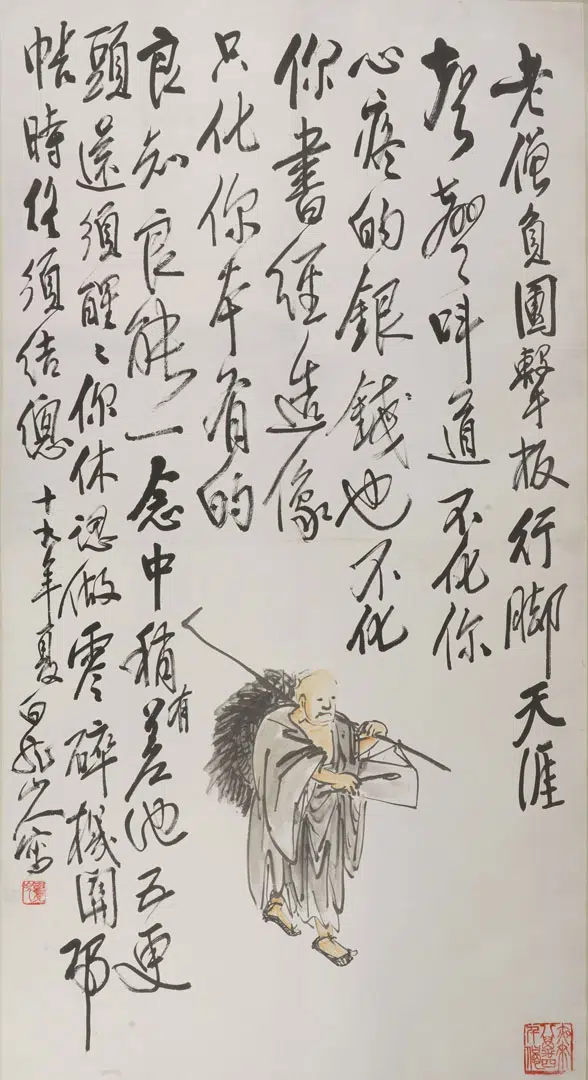 老僧負團擊板行腳天涯
聲聲叫道不化你
心疼的銀錢也不化
你書經造像
只化你本有的
良知良能一念中稍有差池五更
頭還須醒〻你休認做零碎機關那
時終須結總
十九年夏白龍山人寫